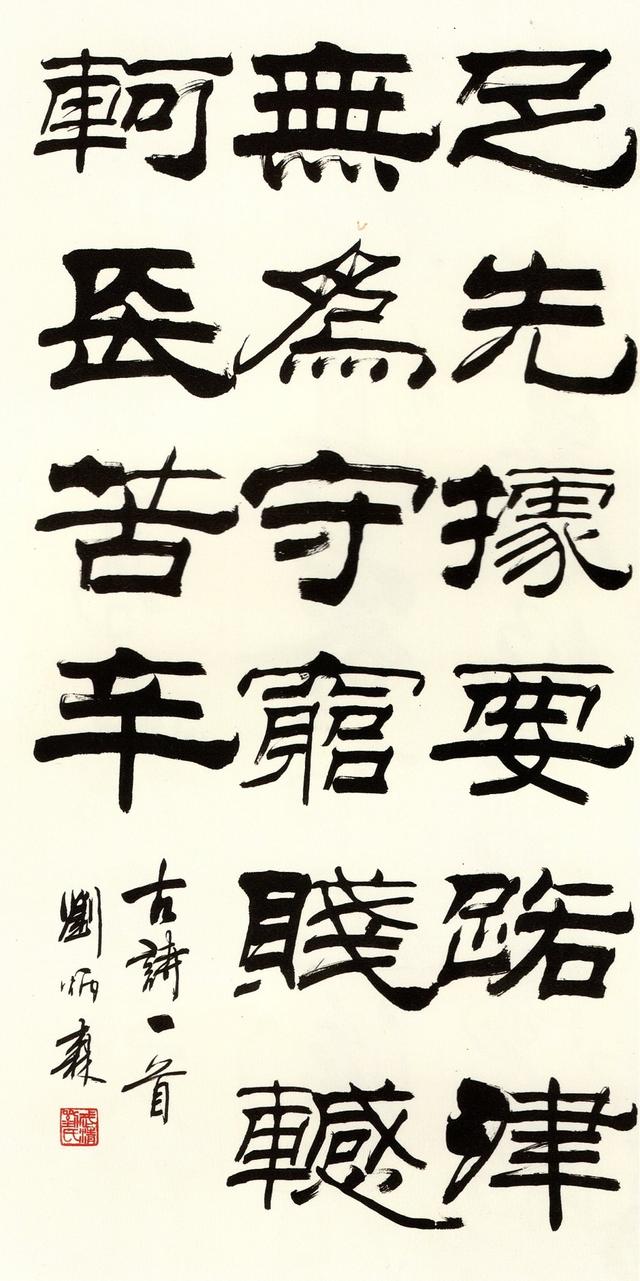 足先據要路津
無為守窮賤轗
軻長苦辛
古詩一首
劉炳森
武清劉氏